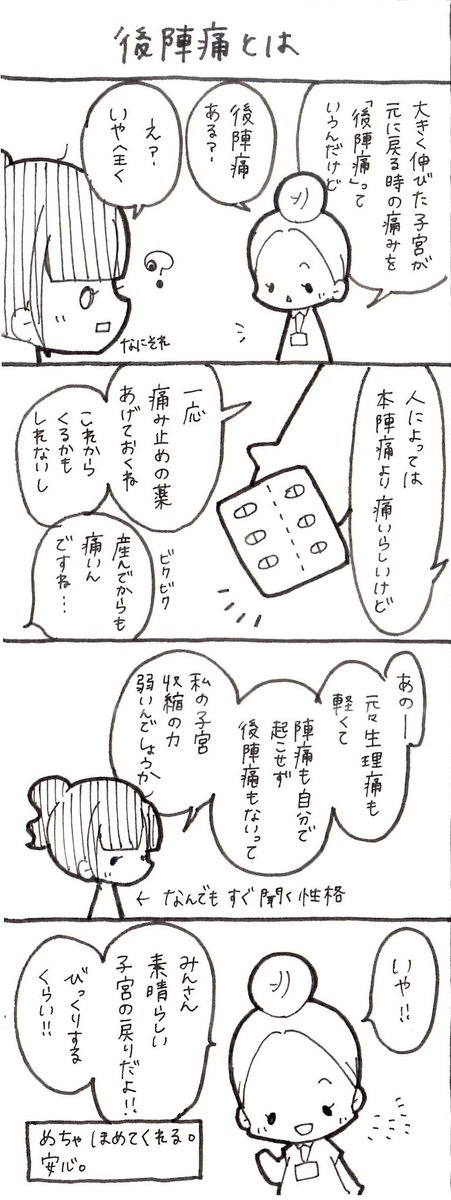 後陣痛とは
大きく伸びた子宮が
元に戻る時の痛みを
「後陣痛」って
いうんだけど
後陣痛
ある?
え?
いや全く
?
なにそれ
人によっては
本陣痛より痛いらしいけど
一応
痛み止めの薬
あげておくね
これから
くるかも
しれないし
ビクビク
産んでからも
痛いん
ですね…
あのー
元々生理痛も
軽くて
陣痛も自分で
起こせず
後陣痛もないって
私の子宮
収縮の力
弱いんでしょうか
← なんでもすぐ聞く性格
いや!!
みんさん
素晴らしい
子宮の戻りだよ!!
びっくりする
くらい!!
めちゃほめてくれる。
安心。